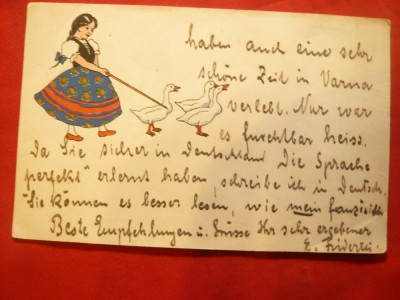 haben auch eine sehr
schöne Zeit in Varna
verlebt. Nur war
es furchtbar heiss.
Da Sie sicher in Deutschland die Sprache
"perfekt" erlernt haben, schreibe ich in Deutsch.
Sie können es besser lesen, wie mein französisch
Beste Empfehlungen u. Grüsse Ihr sehr ergebener
E.